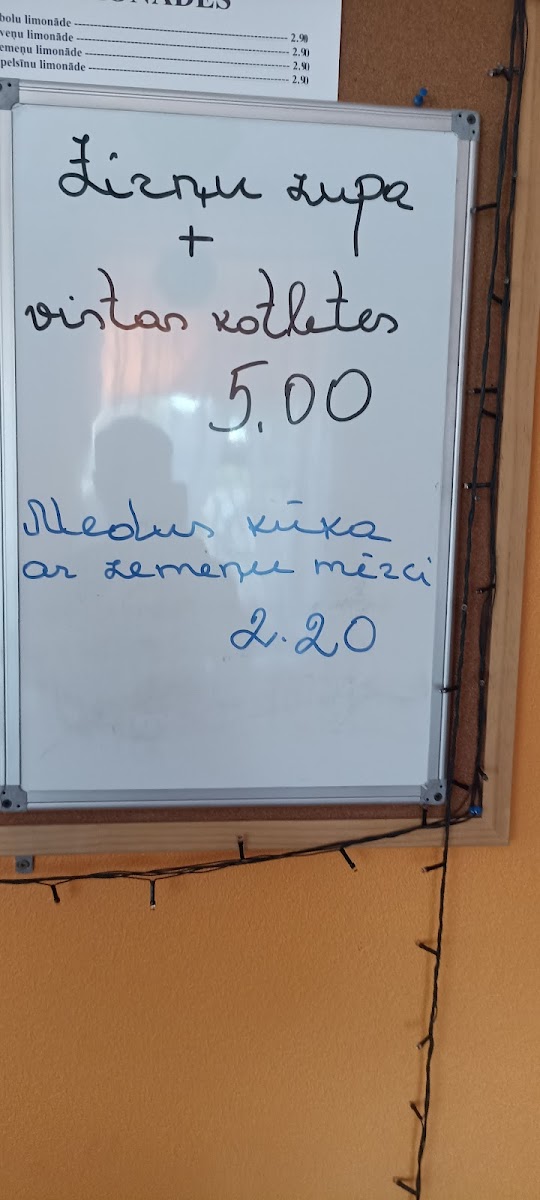 bolu limonāde 2.90
veņu limonāde 2.90
emeņu limonāde 2.90
pelsīnu limonāde 2.90
Zirņu zupa
+
vistas kotletes
5.00
Medus kūka
ar zemeņu mērci
2.20